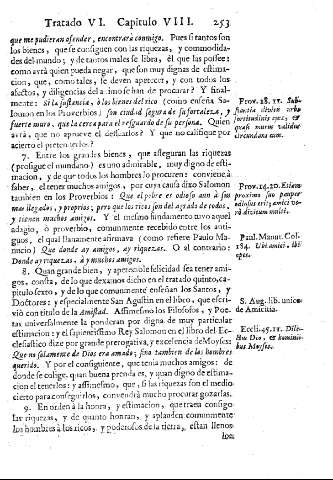 Tratado VI. Capitulo VIII. 253
que me pudieran ofender, encontrarà conmigo. Pues si tantos son
los bienes, que se consiguen con las riquezas, y commodida-
des del mundo; y de tantos males se libra, èl que las possee:
como avrà quien pueda negar, que son muy dignas de estima-
cion, que, como tales, se deven apetecer, y con todos los
afectos, y diligencias del animo se han de procurar? Y final-
mente: Si la sustancia, ò los bienes del rico (como enseña Sa-
lomon en los Proverbios) son ciudad segura de su fortaleza, y
fuerte muro, que la cerca para el resguardo de su persona. Quien
avrà, que no apruève el desearlos? Y que no califique por
acierto el pretenderlos?
7. Entre los grandes bienes, que asseguran las riquezas
(prosigue el mundano) es uno admirable, muy digno de esti-
macion, y de que todos los hombres lo procuren: conviene à
saber, el tener muchos amigos, por cuya causa dixo Salomon
tambien en los Proverbios: Que el pobre es odioso aun à sus
mas llegados, y proprios; pero que los ricos son del agrado de todos,
y tienen muchos amigos. Y el mesmo fundamento tuvo aquel
adagio, ò proverbio, comunmente recebido entre los anti-
guos, el qual llanamente afirmava (como refiere Paulo Ma-
nucio) Que donde ay amigos, ay riquezas. O al contrario:
Donde ay riquezas, à y muchos amigos.
8. Quan grande bien, y apetecible felicidad sea tener ami-
gos, consta, de lo que dexamos dicho en el tratado quinto, ca-
pitulo sexto, y de lo que comunmente enseñan los Santos, y
Doctores: y especialmente San Agustin en el libro, que escri-
viò con titulo de la Amistad. Assimesmo los Filosofos, y Poe-
tas universalmente la ponderan por digna de muy particular
estimacion: y el sapientissimo Rey Salomon en el libro del Ec-
clesiastico dize por grande prerogativa, y excelencia de Moyses:
Que no solamente de Dios era amado; sino tambien de los hombres
querido. Y por el consiguiente, que tenia muchos amigos: de
donde se colige, quan buena prenda es, y quan digno de estima-
cion el tenerlos: y assimesmo, que, si las riquezas son el medio
cierto para conseguirlos, convendrà mucho procurar gozarlas.
9. En orden à la honra, y estimacion, que traen consigo
las riquezas, y de quanto honran, y aplauden comunmente
los hombres à los ricos, y poderosos de la tierra, estàn llenos
los
Prov. 18. 11. Sub-
stantia divitis urbs
fortitudinis ejus, &
quasi murus validus
circundans eum.
Prov. 14. 20. Etiam
proximo suo pauper
odiosus erit; amici ve-
rò divitum multi.
Paul. Manut. Col.
184. Ubi amici, ibi
opes.
S. Aug. lib. unico
de Amicitia.
Eccli. 45. 11. Dile-
ctus Deo, & homini-
bus Moyses.